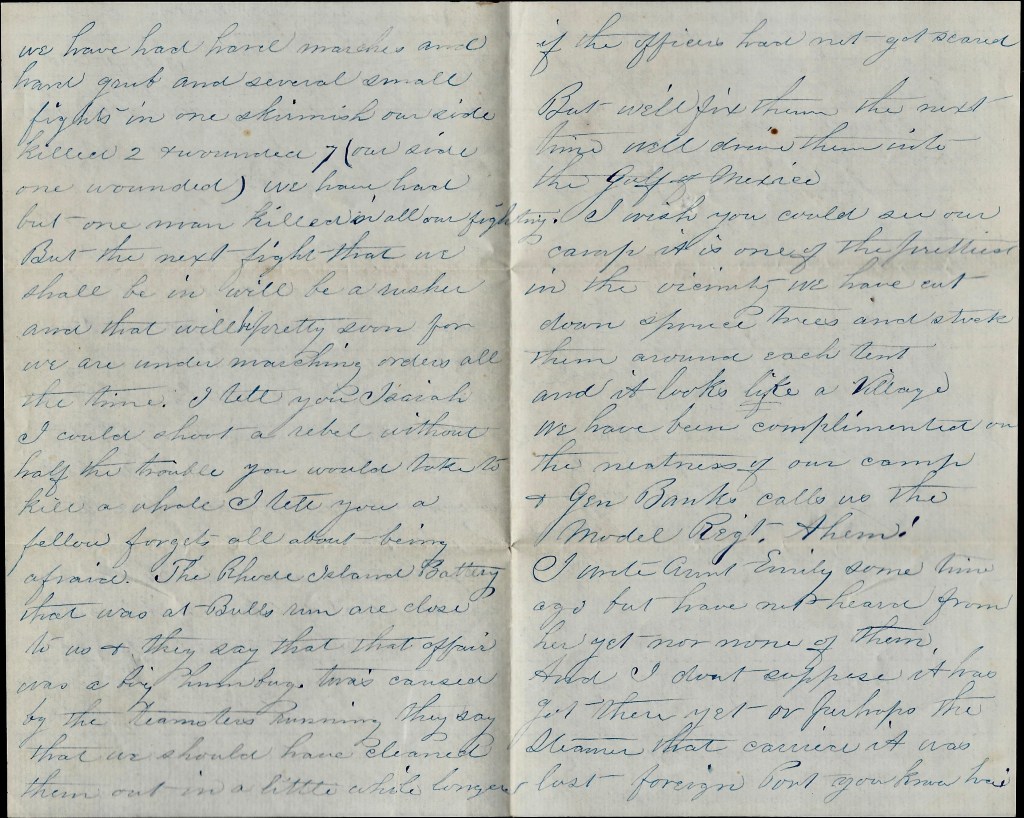 we have had hard marches and
hard grub and several small
fights in one skirmish our side
killed 2 & wounded 7 (our side
one wounded) we have had
but one man killed in all our fighting.
But the next fight that we
shall be in will be a rusher
and that will be pretty soon for
we are under marching orders all
the time. I tell you Isaiah
I could shoot a rebel without
half the trouble you would take to
kill a whale I tell you a
fellow forgets all about being
afraid. The Rhode Island Battery
that was at Bulls run are close
to us & they say that that affair
was a big humbug. twas caused
by the teamsters running they say
that we should have cleaned
them out in a little while longer
if the officers had not got scared
But we'll fix them the next
time we'll drive them into
the Gulf of Mexico
I wish you could see our
camp it is one of the prettiest
in the vicinity we have cut
down spruce trees and stuck
them around each tent
and it looks like a village
we have been complimented on
the neatness of our camp
& Gen Banks calls us the
Model Regt. Ahem!
I wrote Aunt Emily some time
ago but have not heard from
her yet nor none of them
And I dont suppose it has
got there yet or perhaps the
Steamer that carried it was
lost foreign Port you know